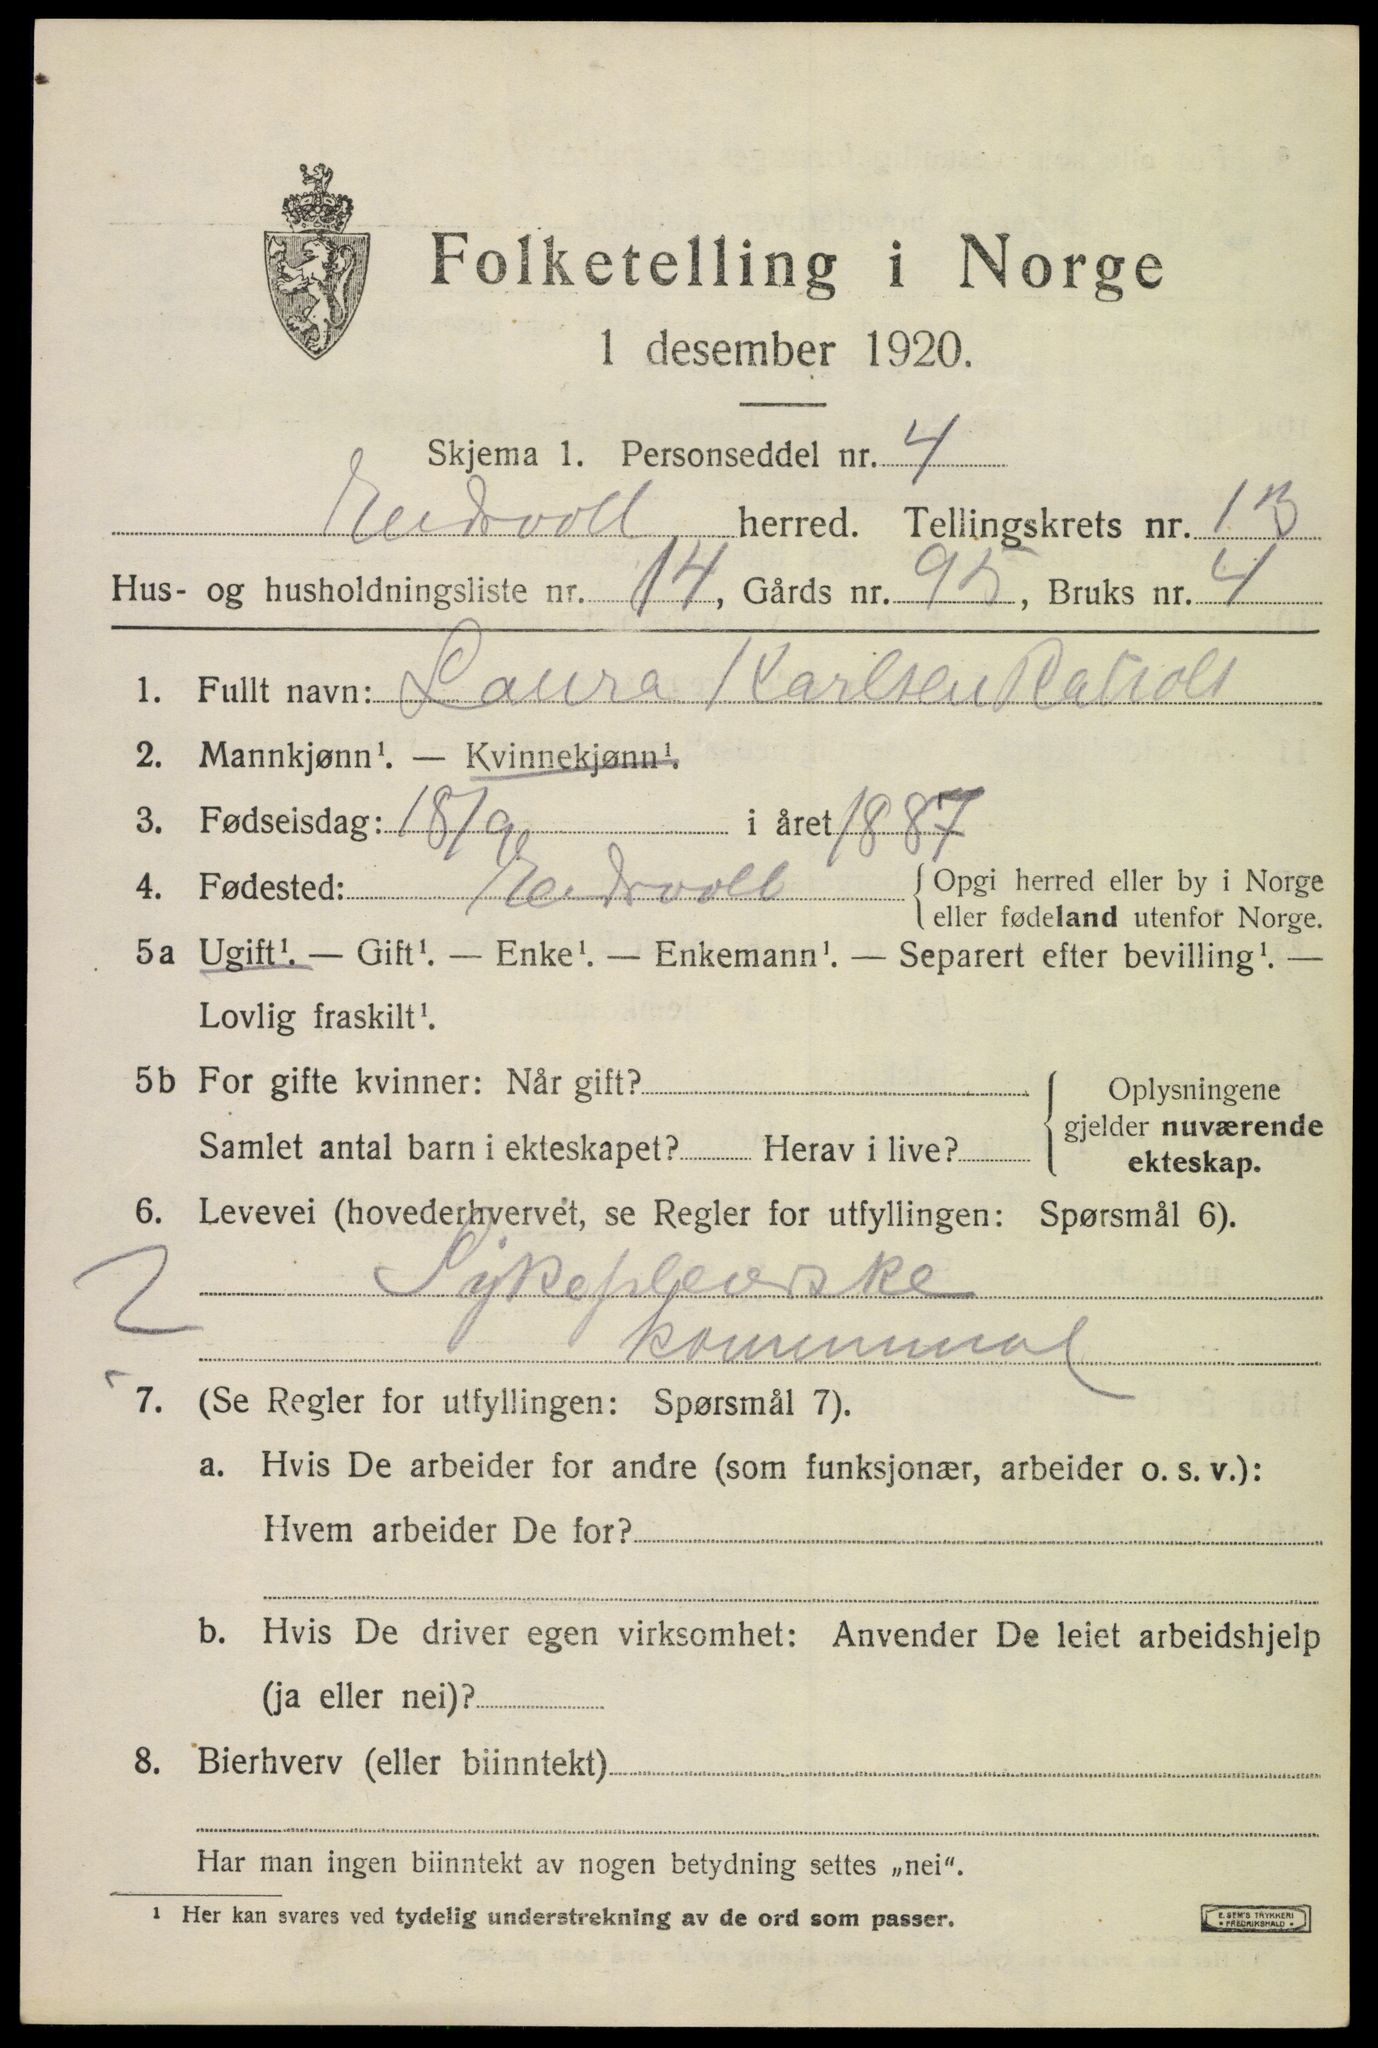 Folketelling i Norge
1 desember 1920.
Skjema 1. Personseddel nr. 4
Eidsvoll herred. Tellingskrets nr. 13
Hus- og husholdningsliste nr. 14, Gårds nr. 95, Bruks nr. 4
1. Fullt navn: Laura Karlsen
2. Mannkjønn¹. — Kvinnekjønn¹.
3. Fødselsdag: 18/9 i året 1887
4. Fødested: Eidsvoll { Opgi herred eller by i Norge
eller fødeland utenfor Norge.
5a Ugift¹. — Gift¹. — Enke¹. — Enkemann¹. — Separert efter bevilling¹. —
Lovlig fraskilt¹.
5b For gifte kvinner: Når gift?
Samlet antal barn i ekteskapet? Herav i live?
{ Oplysningene
gjelder nuværende
ekteskap.
6. Levevei (hovederhvervet, se Regler for utfyllingen: Spørsmål 6).
2 Sykepleierske
kommunal
7. (Se Regler for utfyllingen: Spørsmål 7).
a. Hvis De arbeider for andre (som funksjonær, arbeider o. s. v.):
Hvem arbeider De for?
b. Hvis De driver egen virksomhet: Anvender De leiet arbeidshjelp
(ja eller nei)?
8. Bierhverv (eller biinntekt)
Har man ingen biinntekt av nogen betydning settes „nei“.
¹ Her kan svares ved tydelig understrekning av de ord som passer.
E. SEM'S TRYKKERI
• FREDRIKSHALD •